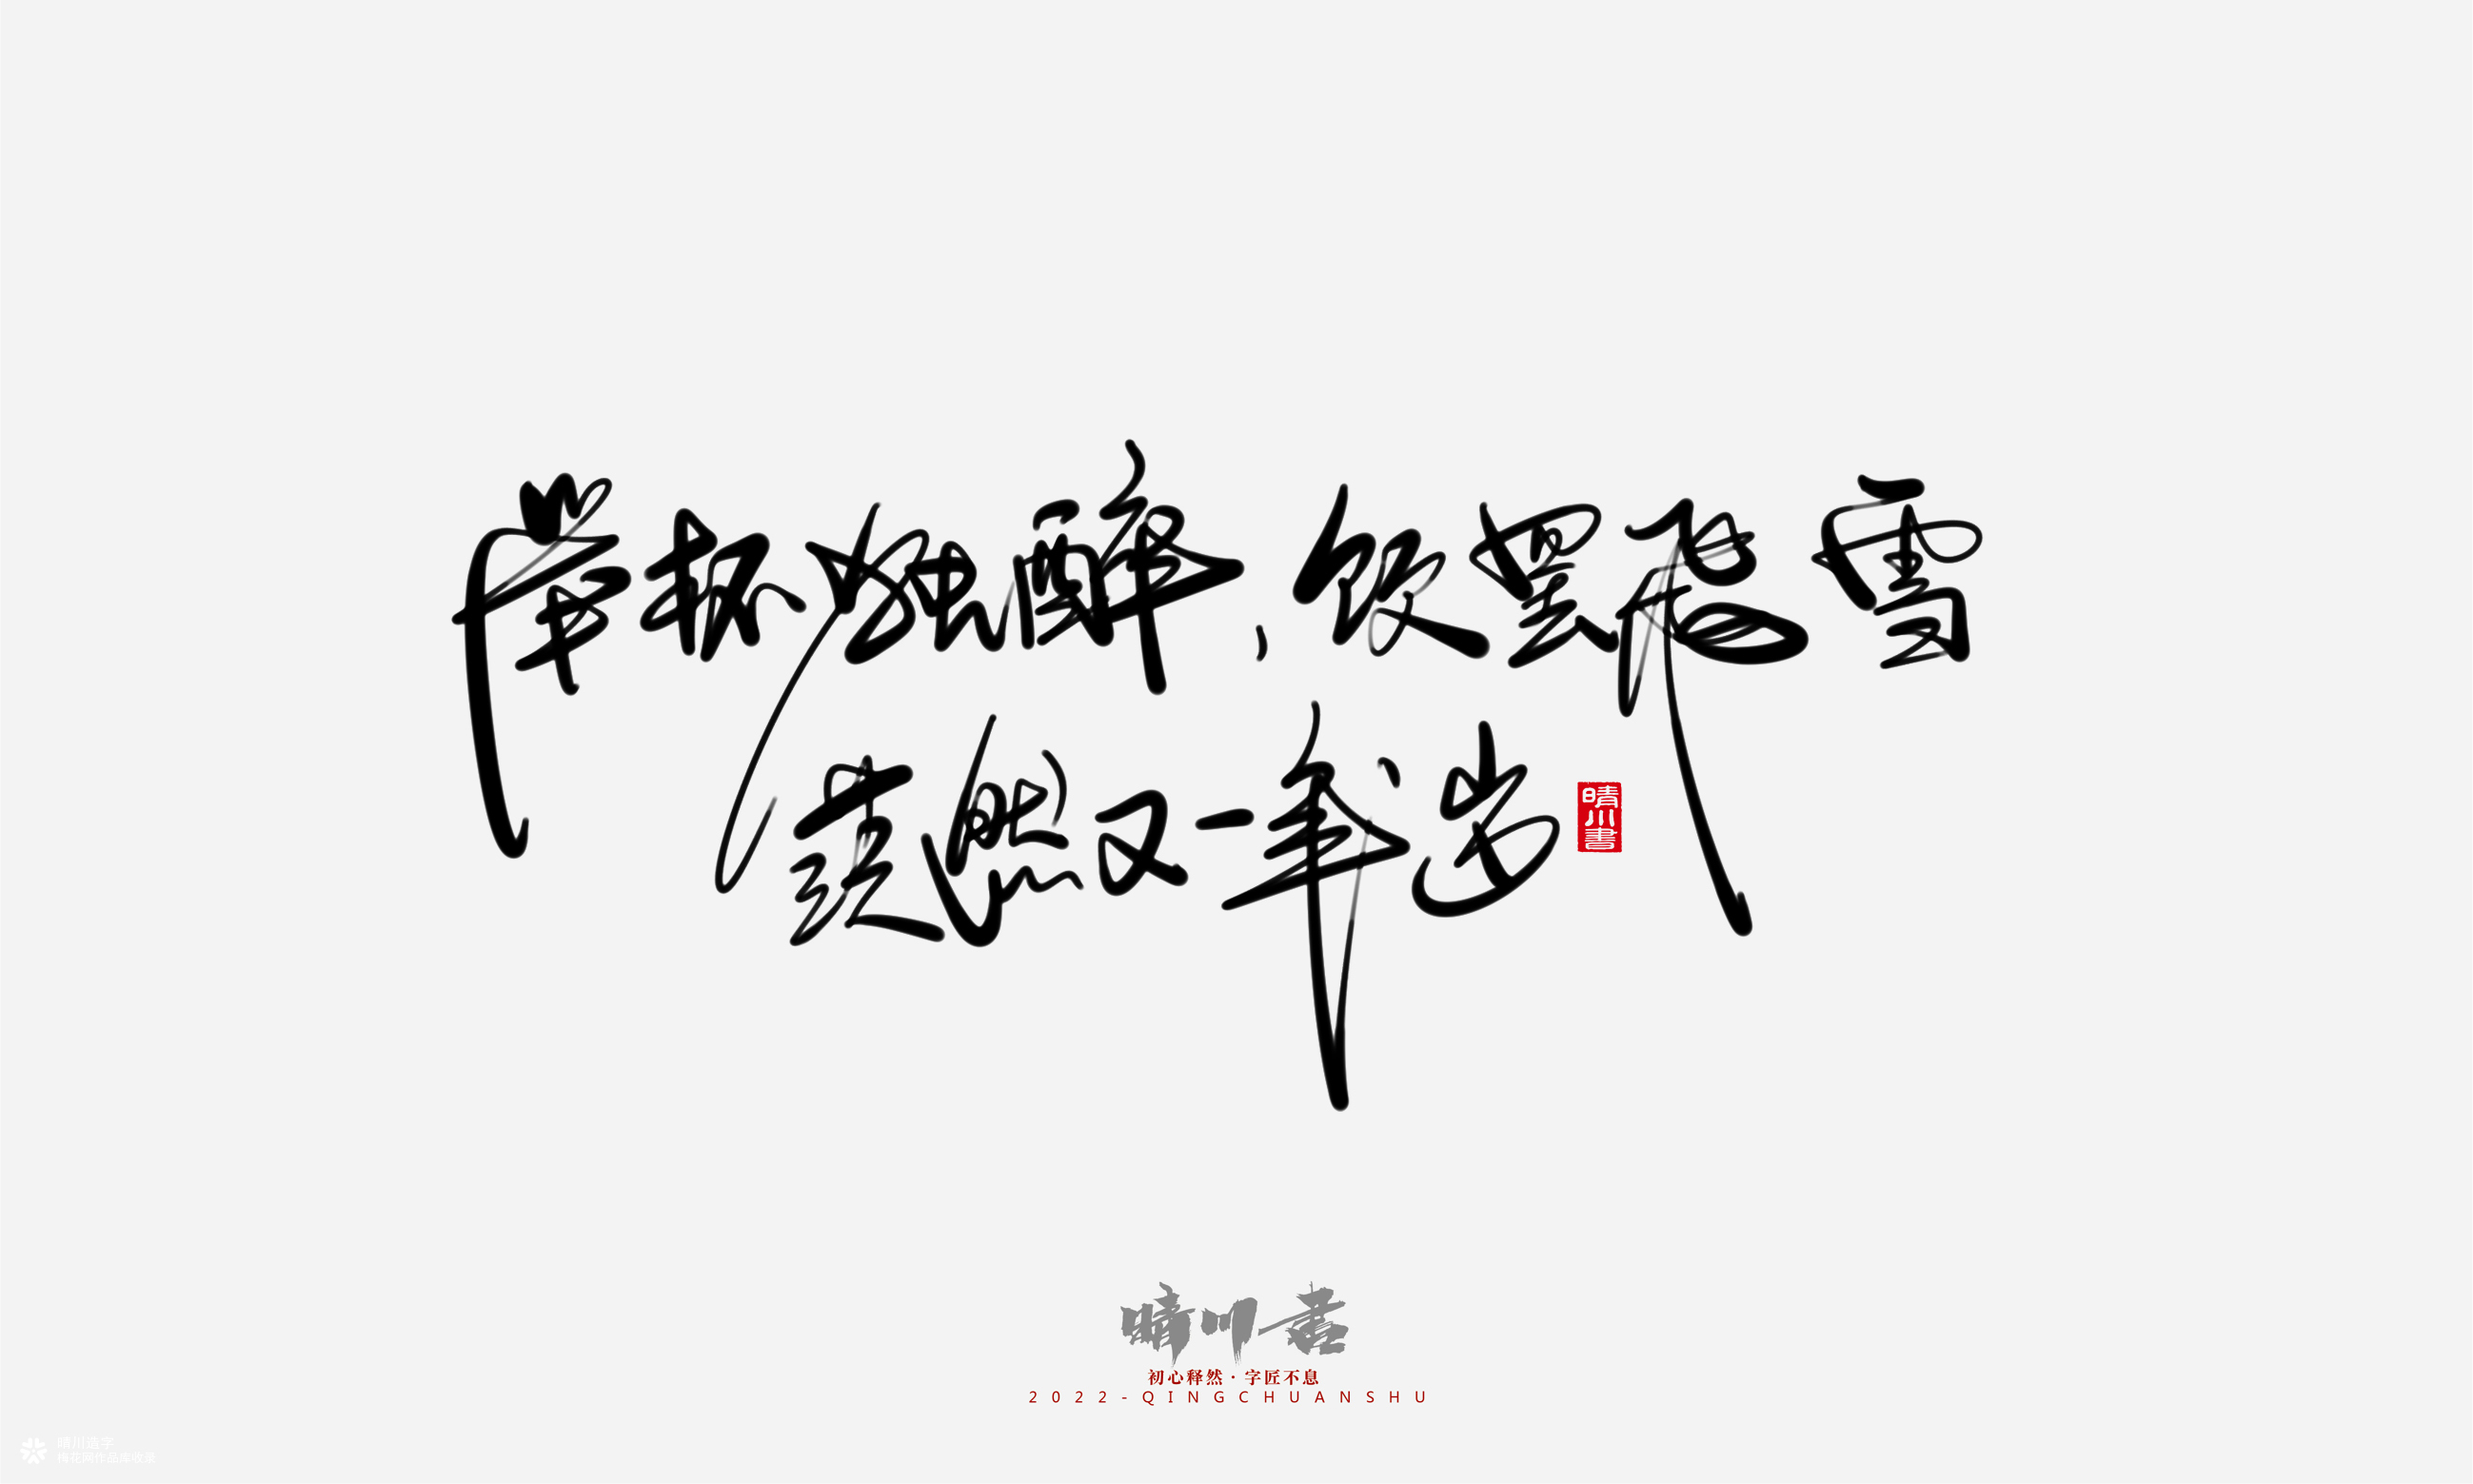 举杯独醉，饮罢飞雪
茫然又一年岁
晴川書
晴川書
初心释然·字匠不息
2022-QINGCHUANSHU
晴川造字
梅花网作品库收录